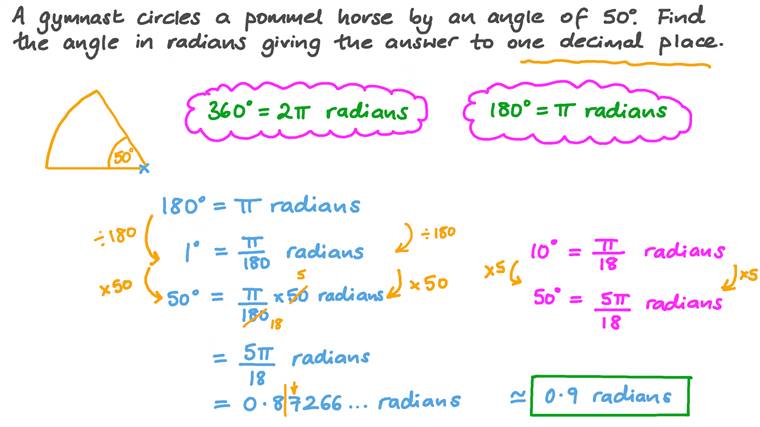 A gymnast circles a pommel horse by an angle of 50°. Find
the angle in radians giving the answer to one decimal place.
360° = 2π radians
180° = π radians
50°
x
180° = π radians
÷180
÷180
1° = π/180 radians
x50
x50
50° = π/180 x 50 radians
5
18
= 5π/18 radians
= 0.87266... radians ≃ 0.9 radians
10° = π/18 radians
x5
x5
50° = 5π/18 radians